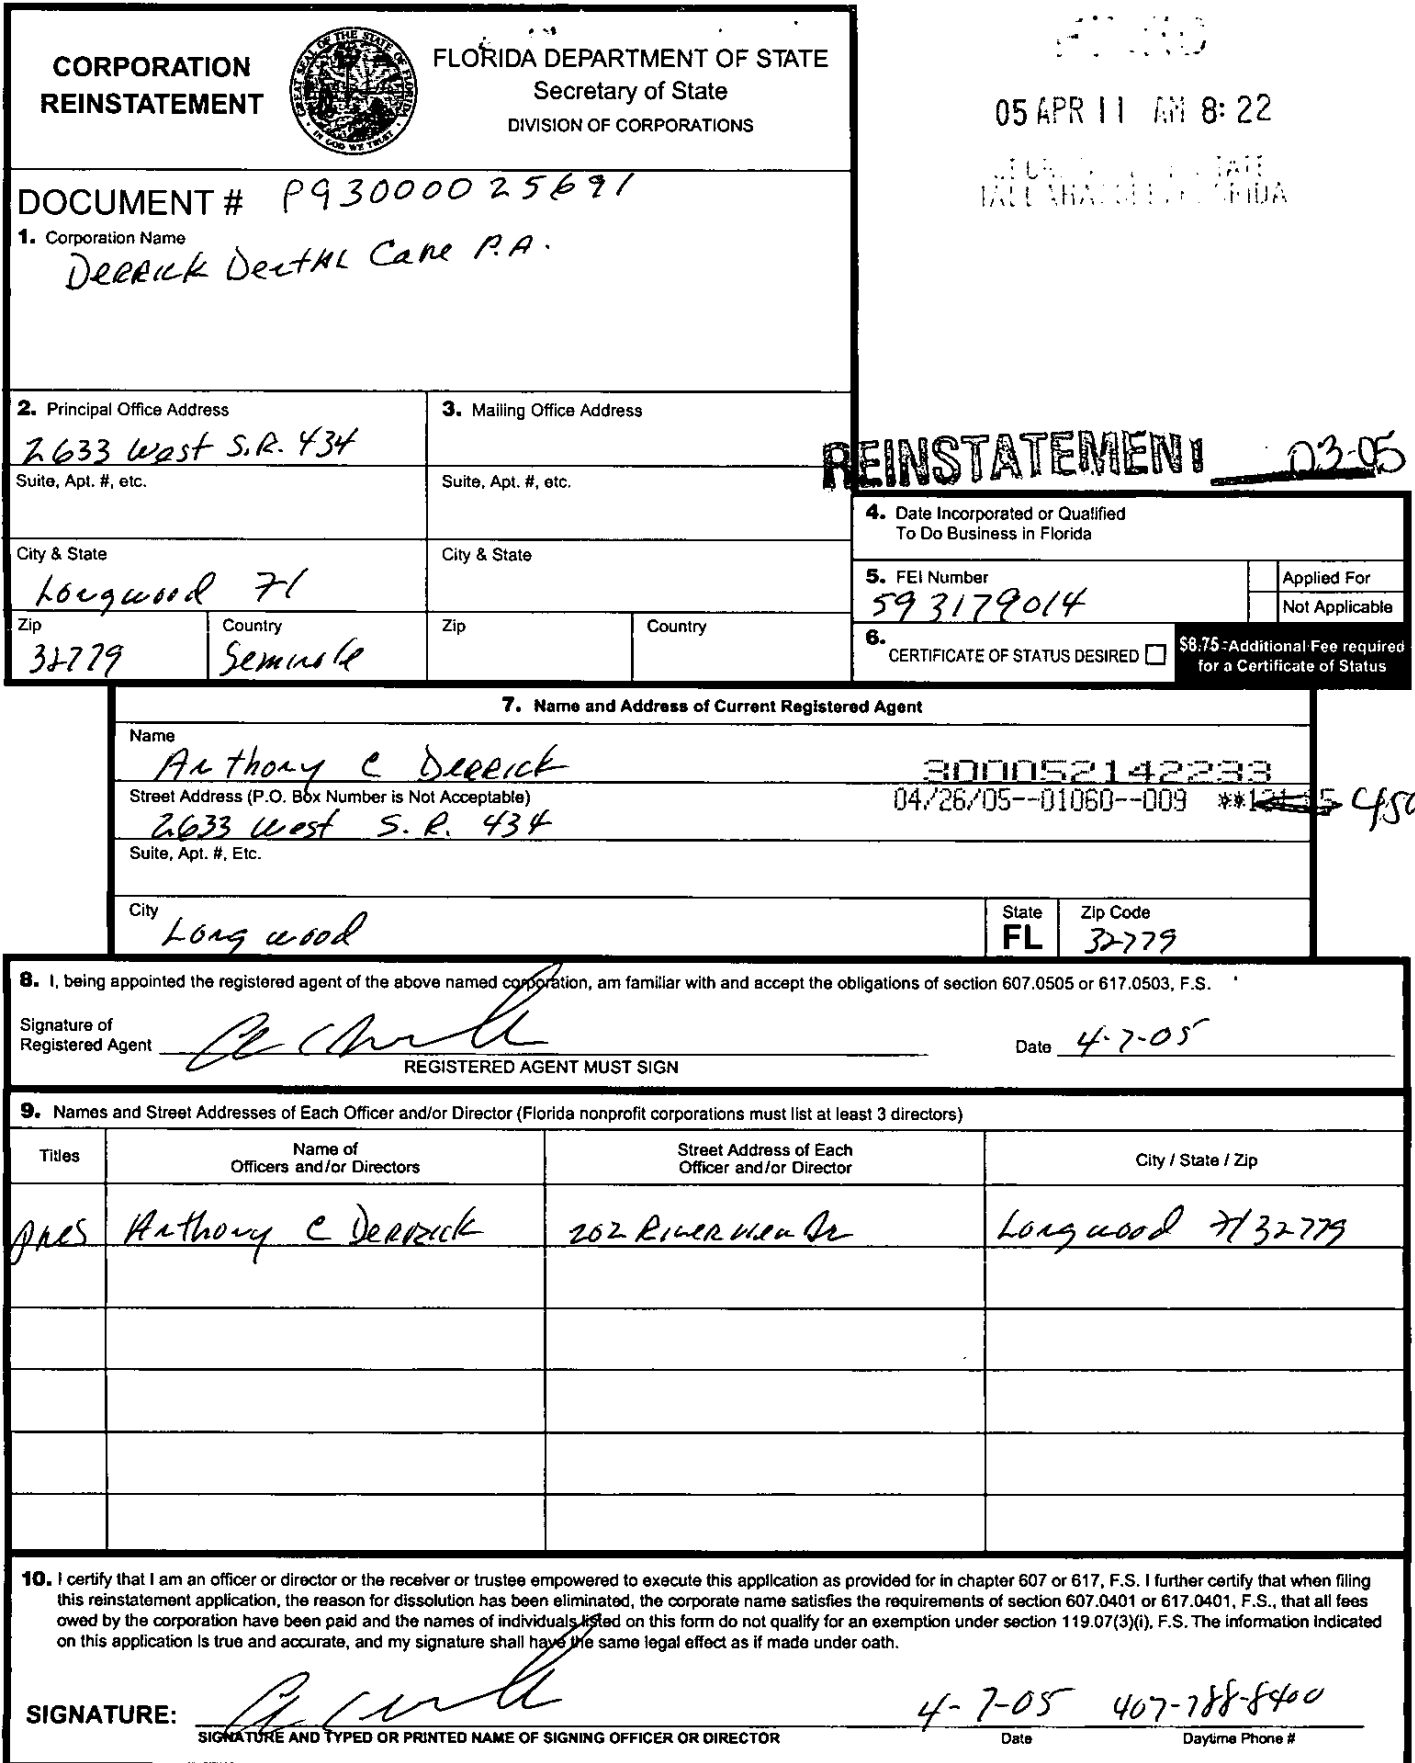 CORPORATION
REINSTATEMENT
GREAT SEAL OF THE STATE OF FLORIDA
IN GOD WE TRUST
FLORIDA DEPARTMENT OF STATE
Secretary of State
DIVISION OF CORPORATIONS
05 APR 11 AM 8:22
TALLAHASSEE, FLORIDA
DOCUMENT # P93000025691
1. Corporation Name
Derrick Dental Care P.A.
2. Principal Office Address
2633 West S.R. 434
3. Mailing Office Address
REINSTATEMENT 03-05
Suite, Apt. #, etc.
Suite, Apt. #, etc.
4. Date Incorporated or Qualified
To Do Business in Florida
City & State
Longwood Fl
City & State
5. FEI Number
593179014
Applied For
Not Applicable
Zip
32779
Country
Seminole
Zip
Country
6. CERTIFICATE OF STATUS DESIRED
$8.75 Additional Fee required
for a Certificate of Status
7. Name and Address of Current Registered Agent
Name
Anthony C Derrick
300052142233
Street Address (P.O. Box Number is Not Acceptable)
04/26/05--01060--009
2633 West S.R. 434
Suite, Apt. #, Etc.
City
Longwood
State
FL
Zip Code
32779
8. I, being appointed the registered agent of the above named corporation, am familiar with and accept the obligations of section 607.0505 or 617.0503, F.S.
Signature of
Registered Agent
Date 4-7-05
REGISTERED AGENT MUST SIGN
9. Names and Street Addresses of Each Officer and/or Director (Florida nonprofit corporations must list at least 3 directors)
Titles
Name of
Officers and/or Directors
Street Address of Each
Officer and/or Director
City / State / Zip
Pres Anthony C Derrick 202 Riverview Dr Longwood Fl 32779
10. I certify that I am an officer or director or the receiver or trustee empowered to execute this application as provided for in chapter 607 or 617, F.S. I further certify that when filing
this reinstatement application, the reason for dissolution has been eliminated, the corporate name satisfies the requirements of section 607.0401 or 617.0401, F.S., that all fees
owed by the corporation have been paid and the names of individuals listed on this form do not qualify for an exemption under section 119.07(3)(i), F.S. The information indicated
on this application is true and accurate, and my signature shall have the same legal effect as if made under oath.
SIGNATURE:
4-7-05 407-788-8400
SIGNATURE AND TYPED OR PRINTED NAME OF SIGNING OFFICER OR DIRECTOR
Date
Daytime Phone #